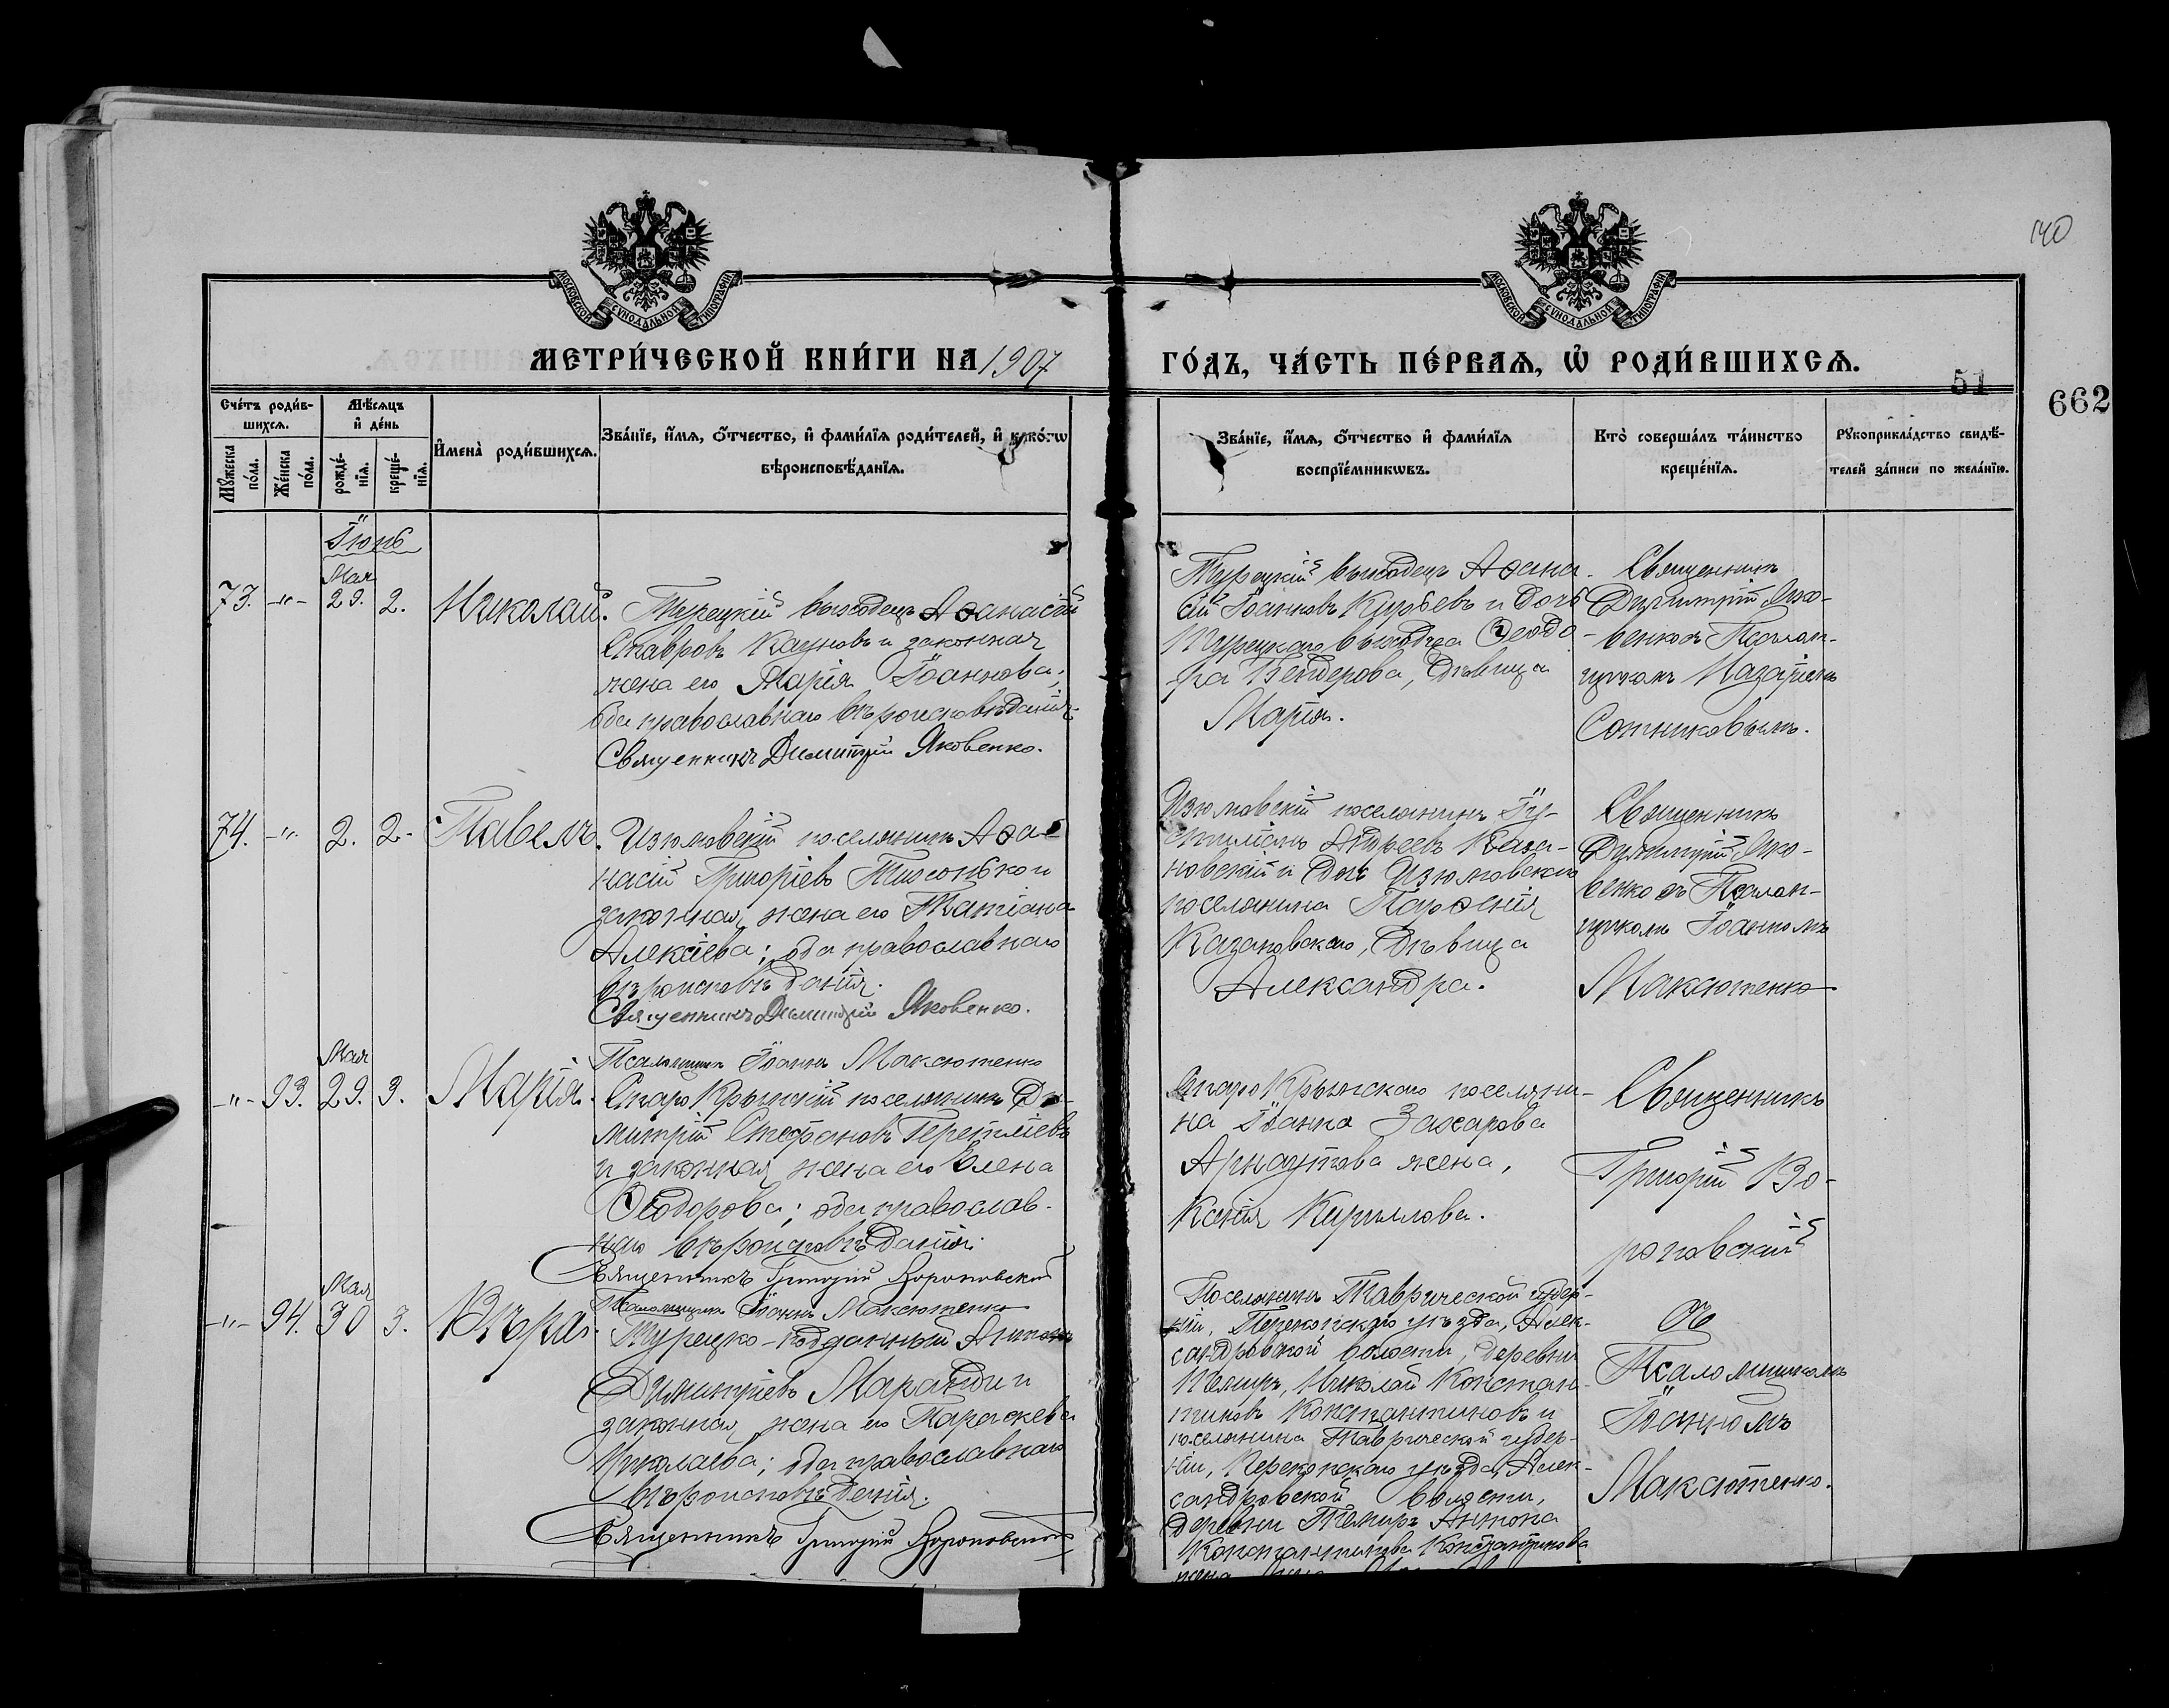 МОСКОВСКОЙ СУНОДАЛЬНОЙ ТИПОГРАФІИ
МОСКОВСКОЙ СУНОДАЛЬНОЙ ТИПОГРАФІИ
140
МЕТРИ́ЧЕСКОЙ КНИ́ГИ НА 1907
ГО́ДЪ, ЧА́СТЬ ПЕ́РВАѦ, Ѡ҆ РОДИ́ВШИХСѦ.
51
662
Сче́тъ роди́в-
шихсѧ.
Мѣ́сѧцъ
и҆ де́нь
Мꙋ́жеска
по́ла.
Же́нска
по́ла.
рожде́-
нїѧ.
креще́-
нїѧ.
И҆мена̀ роди́вшихсѧ.
Зва́нїе, и҆́мѧ, ѻ҆́тчество, и҆ фами́лїѧ роди́телей, и҆ како́гѡ
вѣроисповѣ́данїѧ.
Зва́нїе, и҆́мѧ, ѻ҆́тчество и҆ фами́лїѧ
воспрїе́мникѡвъ.
Кто̀ соверша́лъ та́инство
креще́нїѧ.
Рꙋкоприкла́дство свидѣ́-
телей за́писи по жела́нїю.
Іюнь
Мая
73. -"- 29. 2. Николай.
Турецкій выходецъ Аѳанасій
Ставровъ Кауновъ и законная
жена его Марія Іоаннова;
оба православнаго вѣроисповѣданія.
Священникъ Димитрій Яковенко.
Турецкій выходецъ Аѳана-
сій Іоанновъ Курбевъ и дочь
турецкаго выходца Ѳеодо-
ра Бендерова, дѣвица
Марія.
Священникъ
Димитрій Яко-
венко съ Псалом-
щикомъ Назаріемъ
Сотниковымъ.
74. -"- 2. 2. Павелъ.
Изюмовскій поселянинъ Аѳа-
насій Григоріевъ и
законная жена его Татіана
Алексіева; оба православнаго
вѣроисповѣданія.
Священникъ Димитрій Яковенко.
Псаломщикъ Іоаннъ Максютенко
Изюмовскій поселянинъ Іу-
стиміанъ Андреевъ Каза-
новскій и дочь Изюмовскаго
поселянина Парѳенія
Казановскаго, дѣвица
Александра.
Священникъ
Димитрій Яко-
венко съ Псалом-
щикомъ Іоанномъ
Максютенко
Мая
-"- 93. 29. 3. Марія.
Старо Крымскій поселянинъ Ди-
митрій Стефановъ
и законная жена его Елена
Ѳеодорова; оба православ-
наго вѣроисповѣданія.
Священникъ Григорій Вороновскій
Псаломщикъ Іоаннъ Максютенко
Старо Крымскаго поселяни-
на Іоанна Захарова
Арнаутова жена,
Ксенія Кириллова.
Священникъ
Григорій Во-
роновскій
Мая
-"- 94. 30 3. Вѣра.
Турецко-подданный Антонъ
Димитріевъ Маранди и
законная жена его Параскева
Николаева; оба православнаго
вѣроисповѣданія.
Священникъ Григорій Вороновскій
Поселянинъ Таврической губер-
ніи, Перекопскаго уѣзда, Алек-
сандровской волости, деревни
Темиръ, Николай Констан-
тиновъ Константиновъ и
поселянина Таврической губер-
ніи, Перекопскаго уѣзда, Алек-
сандровской волости,
деревни Темиръ Антона
Константинова Константинова
жена
съ
Псаломщикомъ
Іоанномъ
Максютенко.